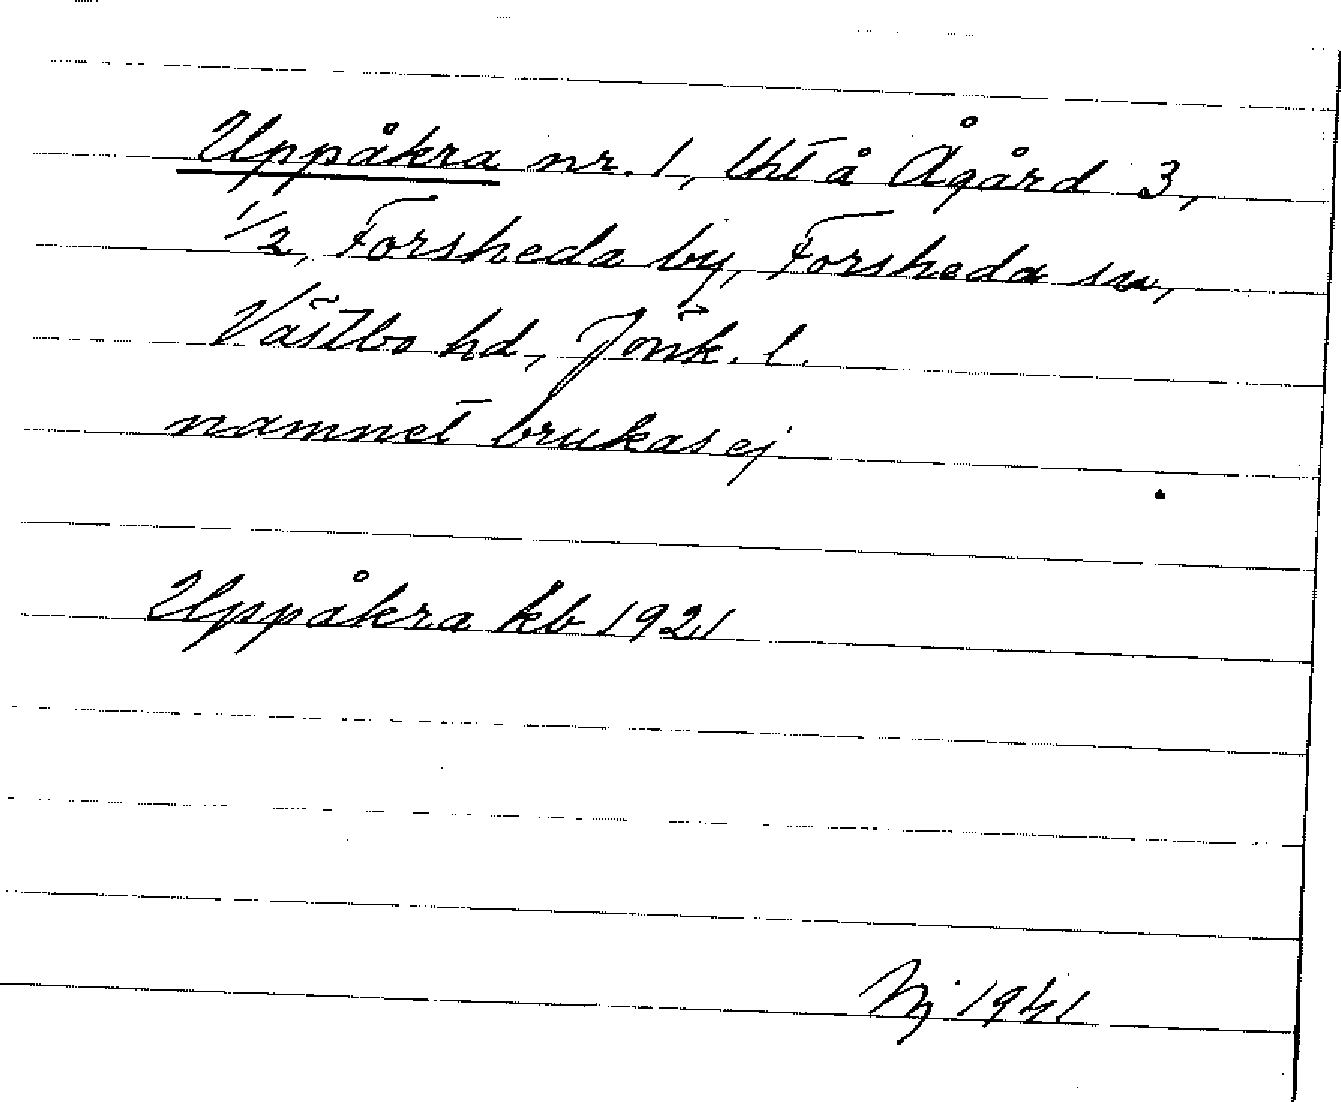 Uppåkra nr. 1, lht å Ågård 3,
1/2, Forsheda by, Forsheda sn,
Västbo hd, Jönk. l.
namnet brukas ej
Uppåkra kb 1921
1941